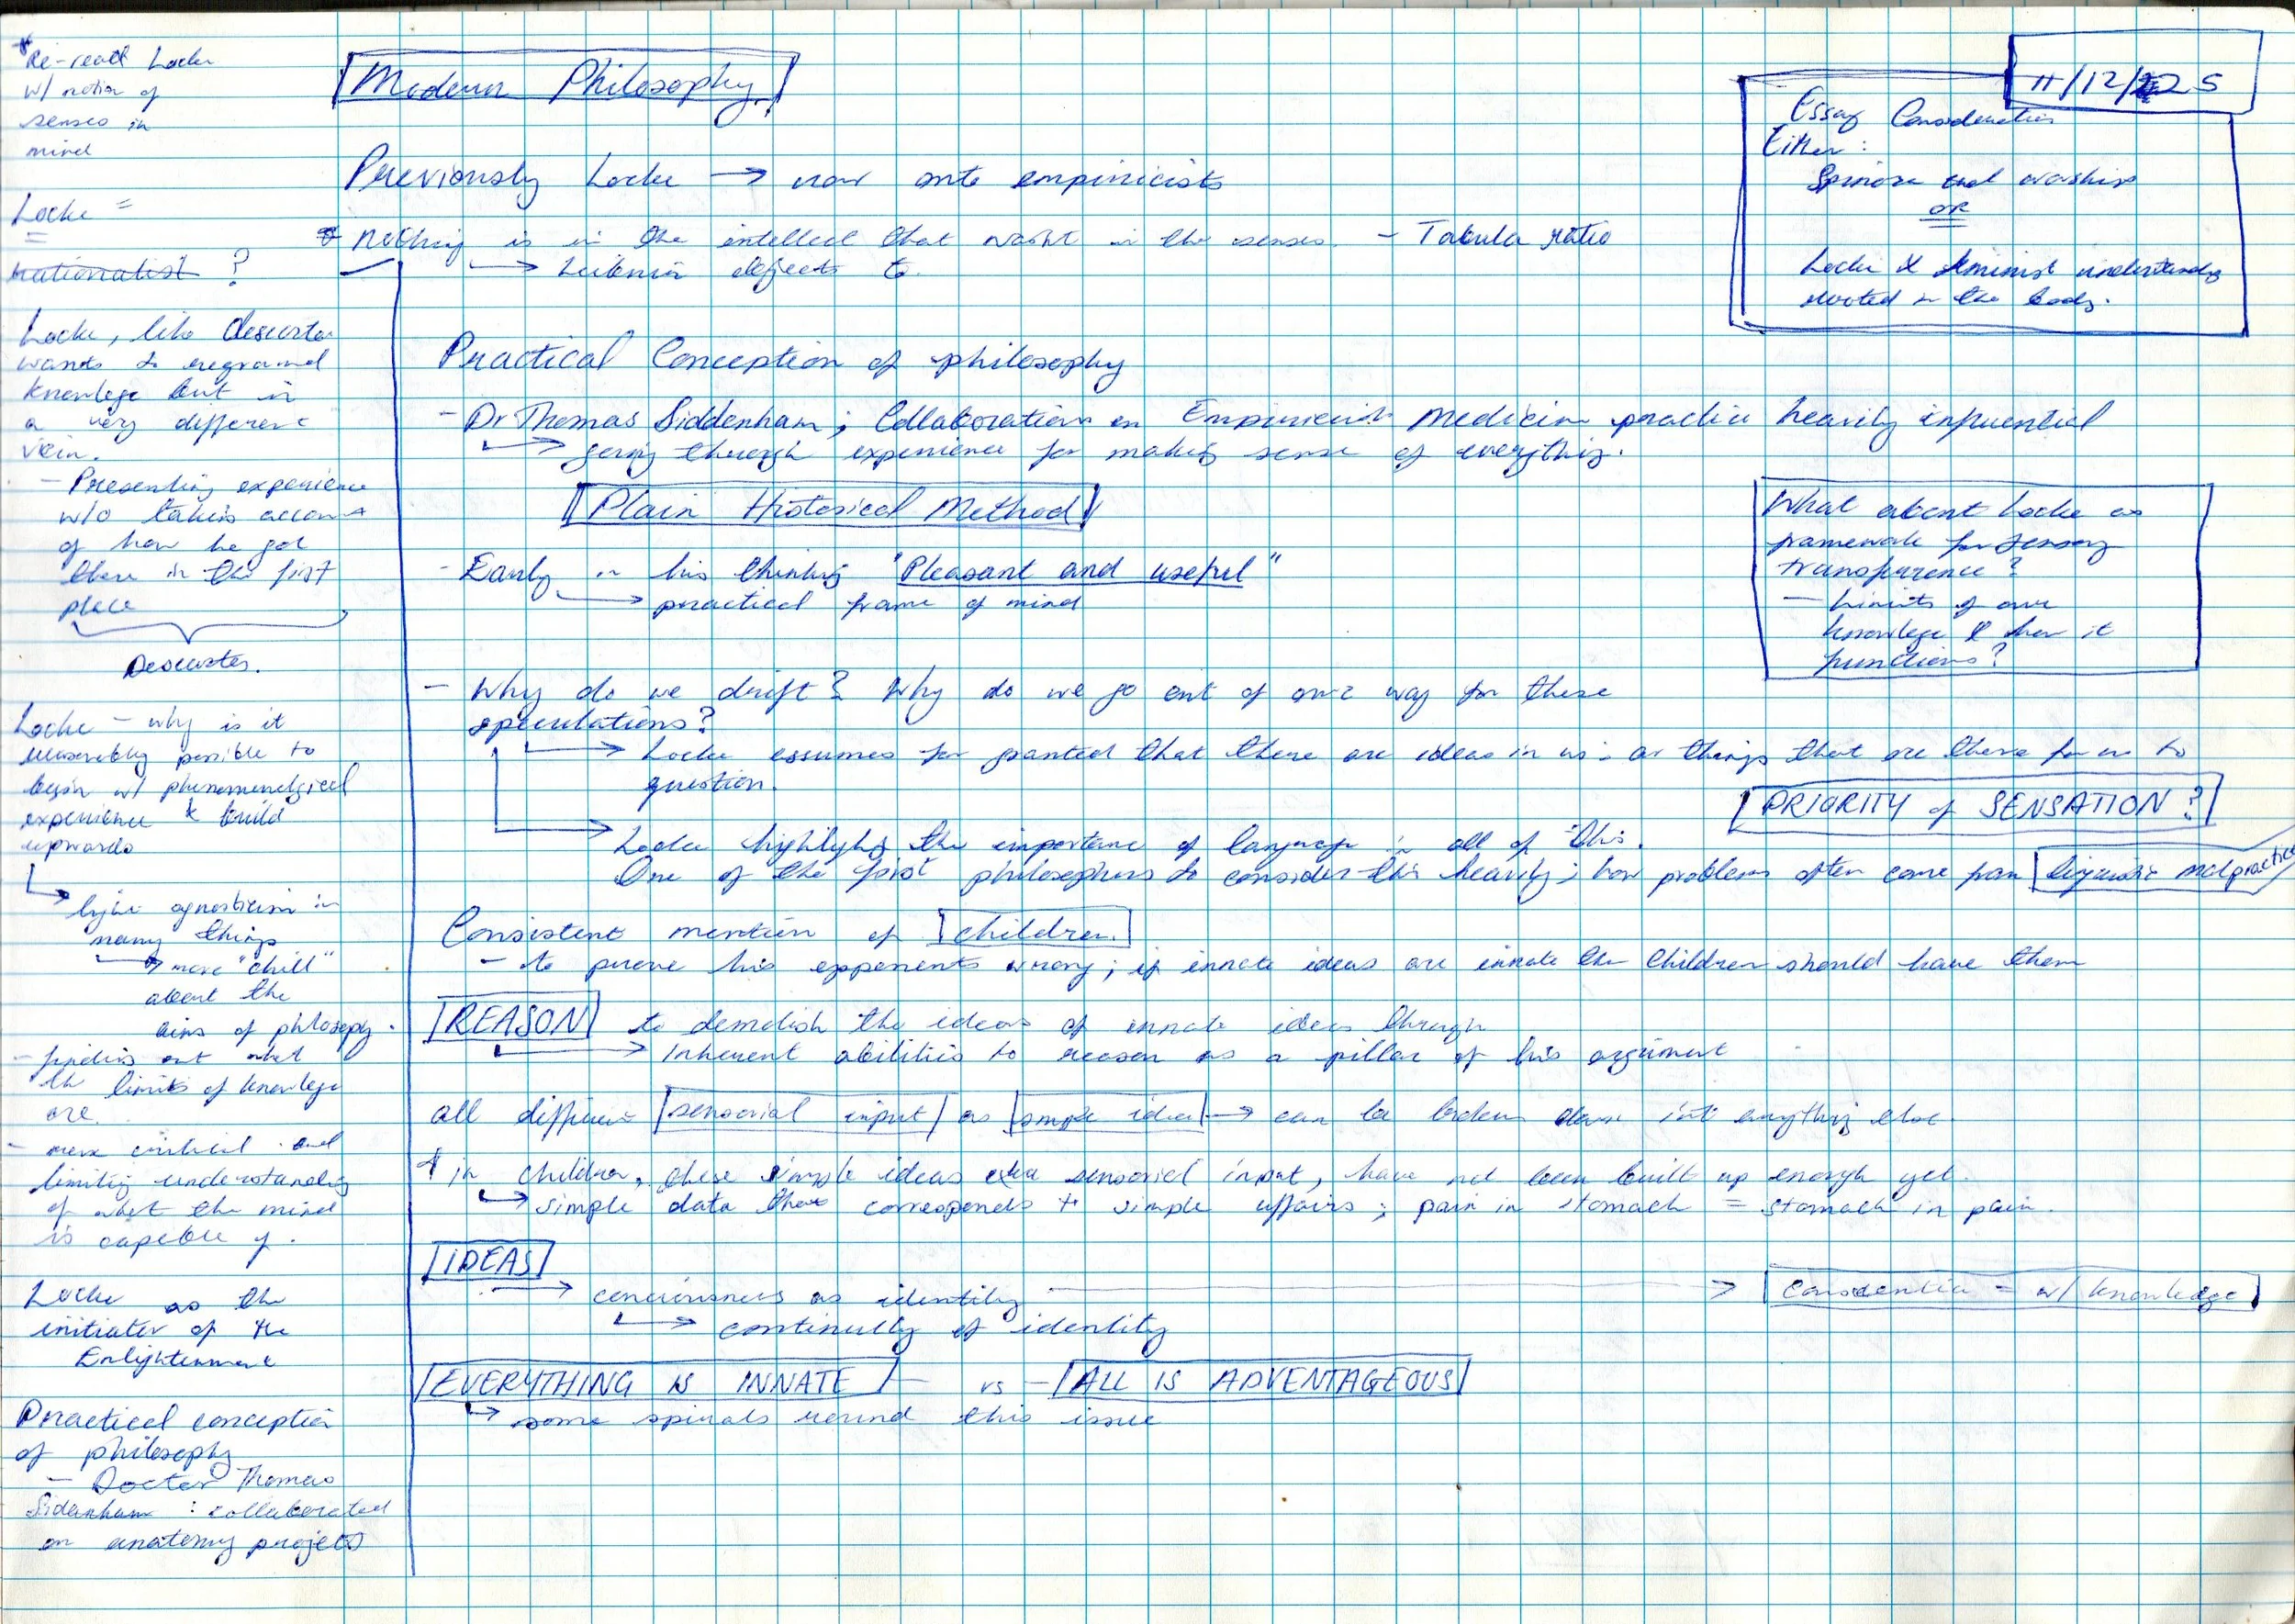 *Re-read Locke
w/ notion of
senses in
mind
Locke =
rationalist ?
Locke, like Descartes
wants to reground
knowlege but in
a very different
vein.
- Presenting experience
w/o taking account
of how he got
there in the first
place
Descartes.
Locke - why is it
possible to
begin w/ phenomenolgical
experience & build
upwards
light agnosticism in
many things
more "chill"
about the
aims of philosophy.
- finding out what
the limits of knowlege
are.
- more critical and
limiting understanding
of what the mind
is capable of.
Locke as the
initiator of the
Enlightenment
Practical conception
of philosophy
- Doctor Thomas
Sidenham : collaborated
on anatomy projects
Modern Philosophy
11/12/25
Essay Consideration
Either :
Spinoza and worship
OR
Locke & feminist understanding
rooted in the body.
Previously Locke → now onto empiricists
* nothing is in the intellect that wasnt in the senses. - Tabula ratio
→ Leibniz objects to.
Practical Conception of philosophy
- Dr Thomas Siddenham; Collaboration on Empiricist Medicine practice heavily influential
→ going through experience for making sense of everything.
Plain Historical Method
- Early in his thinking "Pleasant and useful"
→ practical frame of mind
What about Locke as
framework for sensory
transparence?
- Limits of our
knowlege & how it
functions?
- Why do we drift? Why do we go out of our way for these
speculations?
→ Locke assumes for granted that there are ideas in us - or things that are there for us to
question.
PRIORITY of SENSATION?
→ Locke highlights the importance of language in all of this.
One of the first philosophers to consider this heavily; how problems often come from linguistic malpractice
Consistent mention of children.
- to prove his opponents wrong; if innate ideas are innate the children should have them
REASON to demolish the ideas of innate ideas through
→ Inherent abilities to reason as a pillar of his argument
all different sensorial input as simple ideas → can be broken down into anything else.
* in children, these simple ideas sensorial input, have not been built up enough yet.
→ simple data that corresponds to simple affairs; pain in stomach = stomach in pain.
IDEAS
→ conciousness as identity → = w/ knowledge
→ continuity of identity
EVERYTHING IS INNATE - vs - ALL IS ADVENTAGEOUS
→ some spirals round this issue